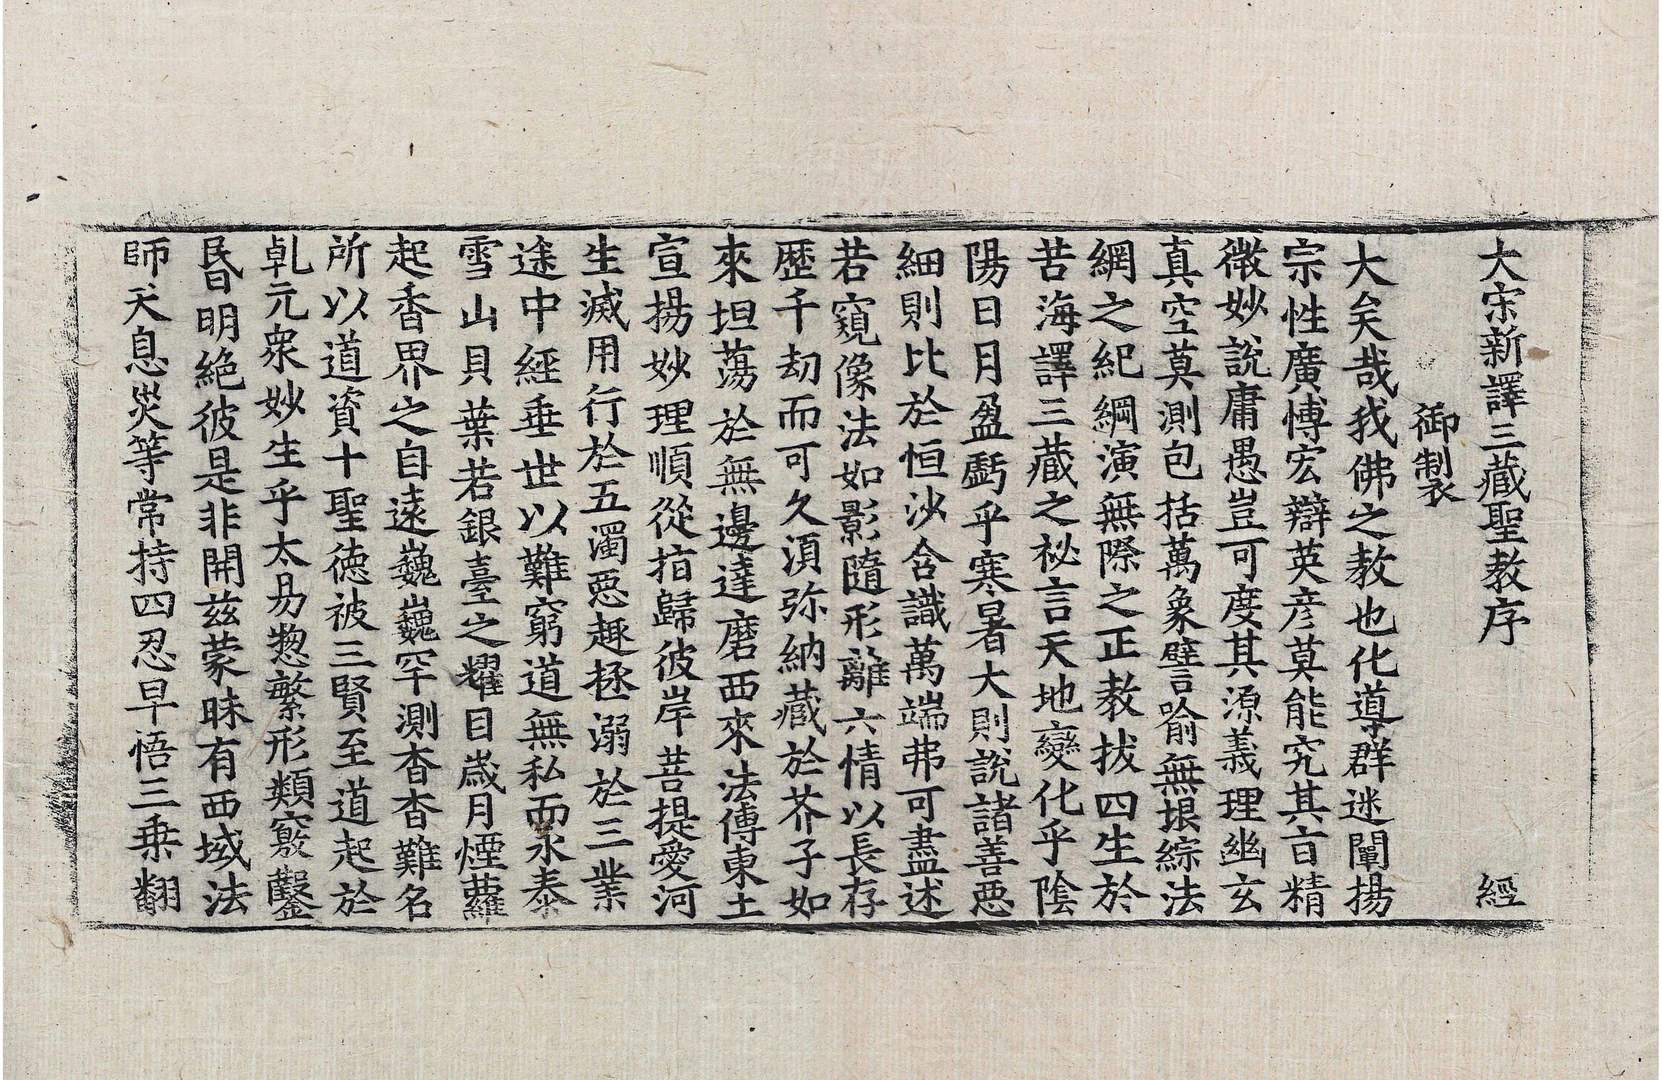 大宋新譯三藏聖教序 經
御製
大矣哉我佛之教也化導群迷闡揚
宗性廣愽宏辯英彦莫能究其㫖精
微妙說庸愚豈可度其源義理幽玄
真空莫測包括萬象譬喻無垠綜法
網之紀綱演無際之正教拔四生於
苦海譯三藏之祕言天地變化乎陰
陽日月盈虧乎寒暑大則說諸善惡
細則比於恒沙含識萬端弗可盡述
若窺像法如影隨形離六情以長存
歷千劫而可久湏弥納藏於芥子如
來坦蕩於無邊達磨西來法傳東土
宣揚妙理順從指歸彼岸菩提愛河
生滅用行於五濁惡趣拯溺於三業
途中經垂世以難窮道無私而永泰
雪山貝葉若銀臺之耀目歲月煙蘿
起香界之自遠巍巍罕測杳杳難名
所以道資十聖德被三賢至道起於
乹元衆妙生乎太易惣繁形類竅鑿
昬明絶彼是非開茲蒙昧有西域法
師天息灾等常持四忍早悟三乗翻